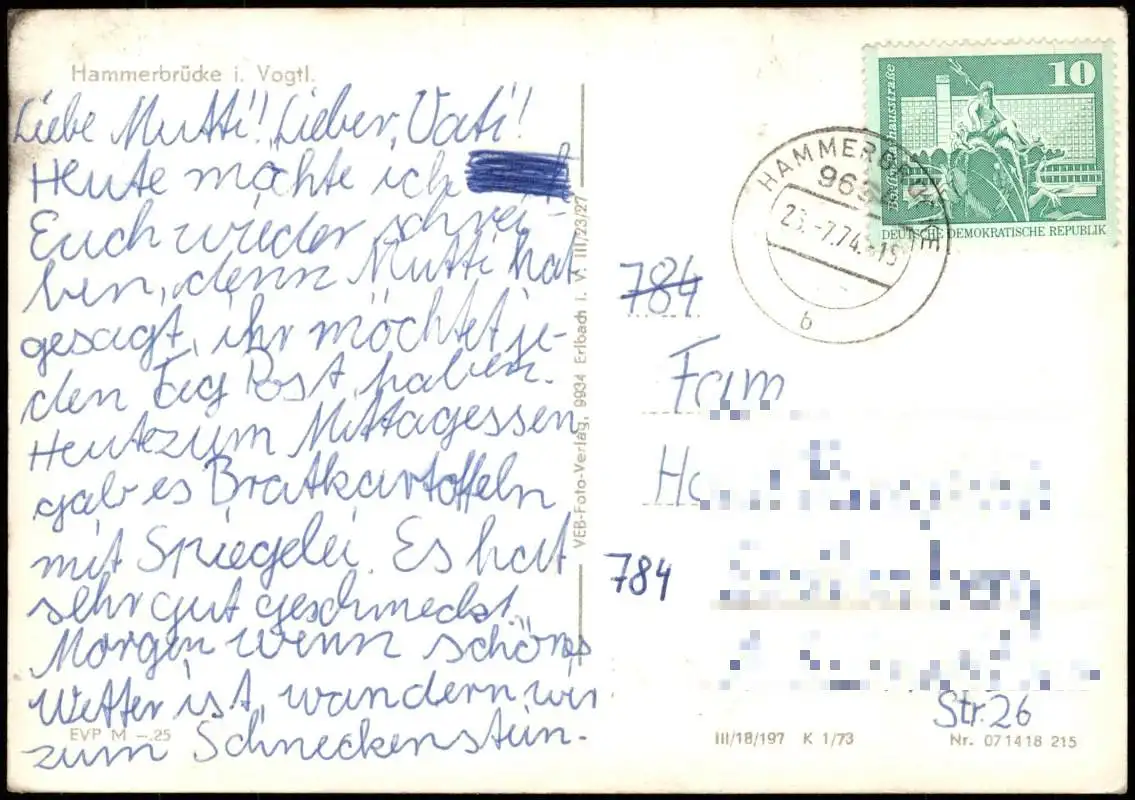 Hammerbrücke i. Vogtl.
Liebe Mutti! Lieber Vati!
Heute möchte ich
Euch wieder schrei-
ben, denn Mutti hat
gesagt, ihr möchtet je-
den Tag Post haben.
Heute zum Mittagessen
gab es Bratkartoffeln
mit Spiegelei. Es hat
sehr gut geschmeckt.
Morgen wenn schönes
Wetter ist, wandern wir
zum Schneckenstein.
EVP M -.25
VEB-Foto-Verlag, 9934 Erlbach i. V. III/23/27
10
DEUTSCHE DEMOKRATISCHE REPUBLIK
HAMMERBRÜCKE
23.-7.74
b
784
Fam
784
Str. 26
III/18/197 K 1/73
Nr. 071418 215